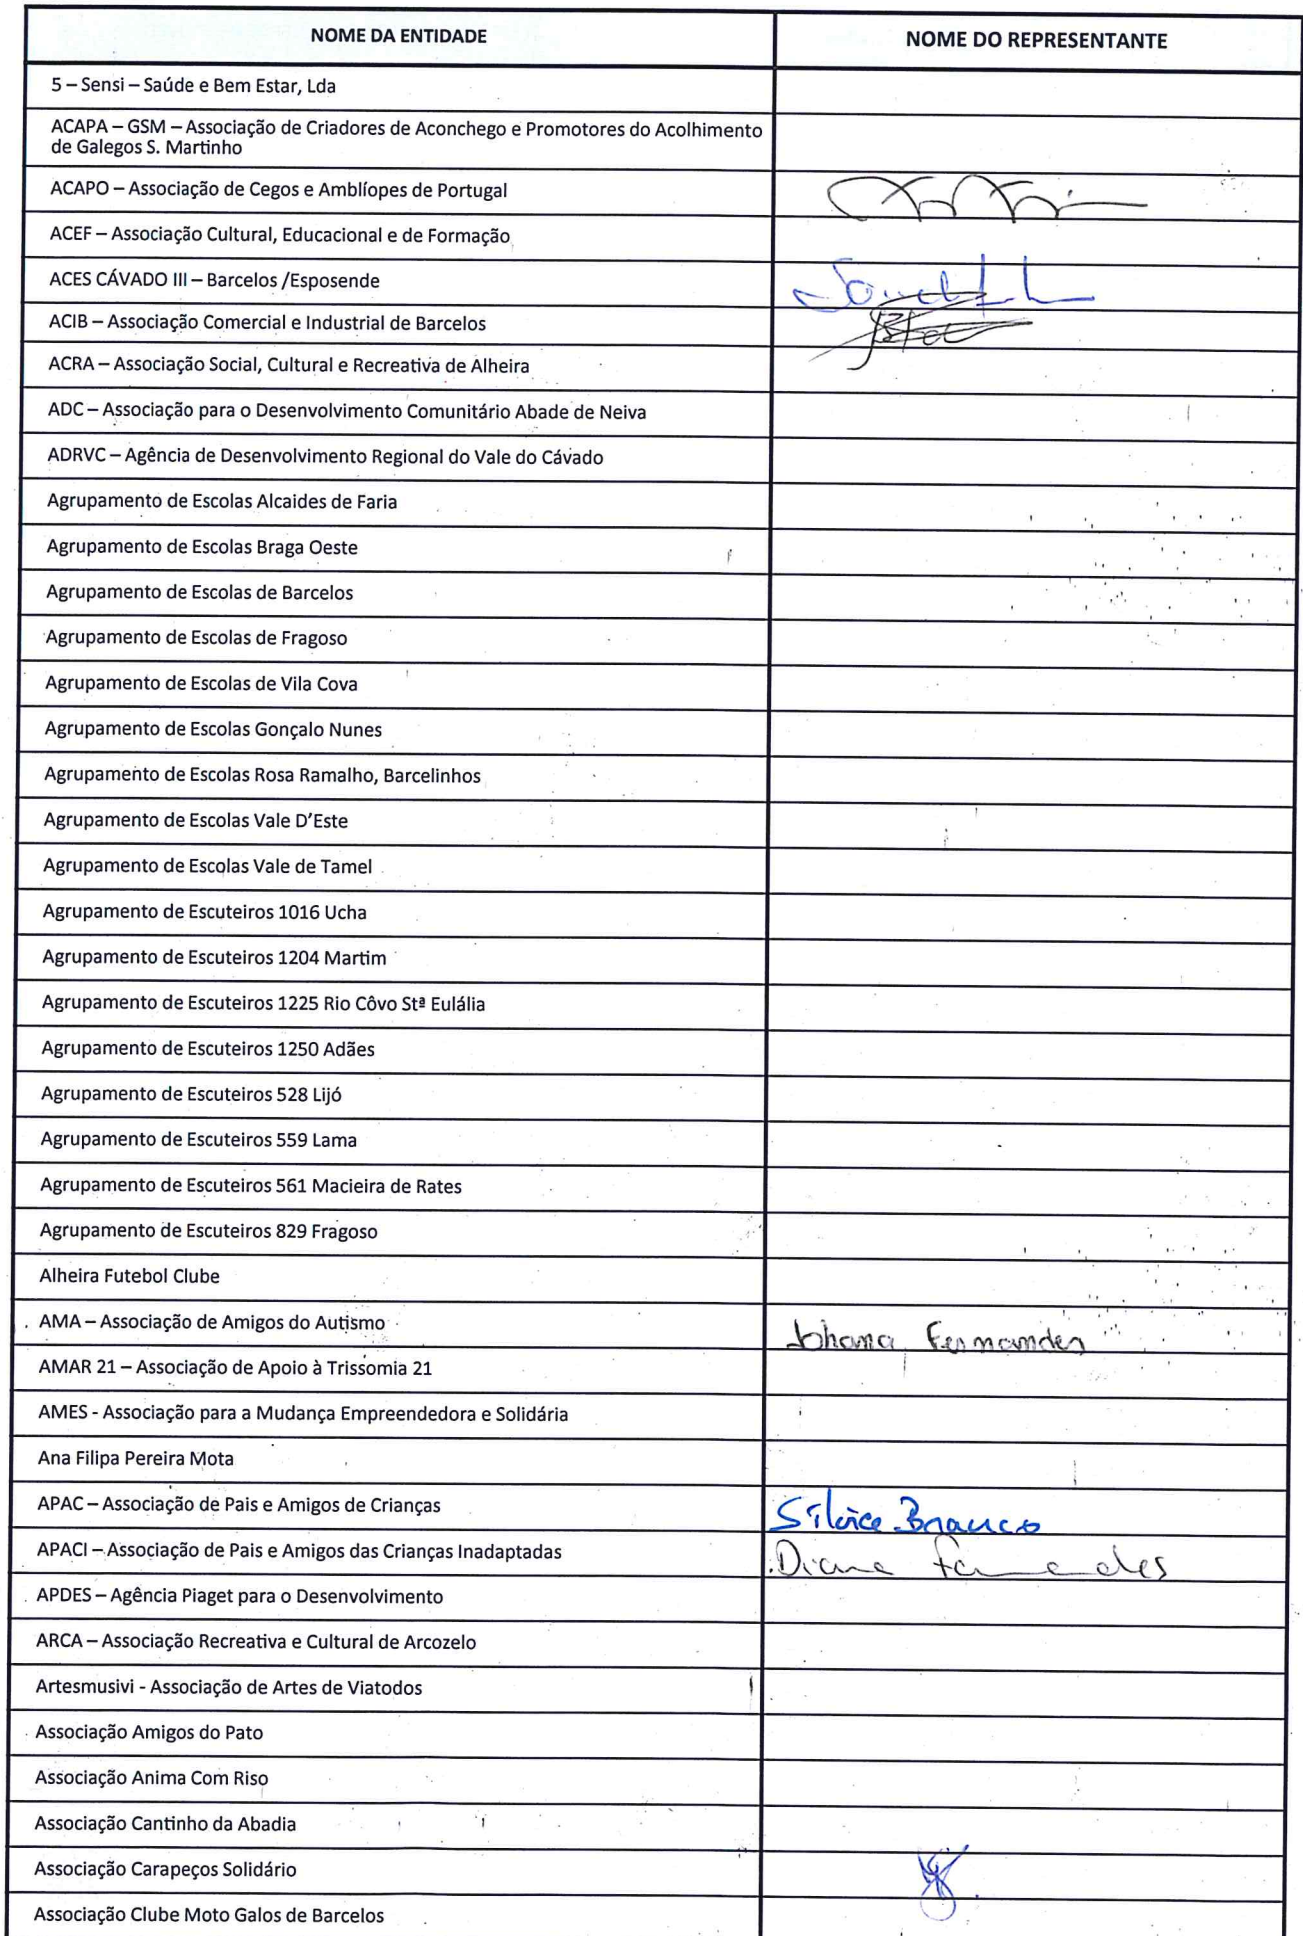 NOME DA ENTIDADE NOME DO REPRESENTANTE
5 – Sensi – Saúde e Bem Estar, Lda
ACAPA – GSM – Associação de Criadores de Aconchego e Promotores do Acolhimento
de Galegos S. Martinho
ACAPO – Associação de Cegos e Amblíopes de Portugal
ACEF – Associação Cultural, Educacional e de Formação
ACES CÁVADO III – Barcelos /Esposende
ACIB – Associação Comercial e Industrial de Barcelos
ACRA – Associação Social, Cultural e Recreativa de Alheira
ADC – Associação para o Desenvolvimento Comunitário Abade de Neiva
ADRVC – Agência de Desenvolvimento Regional do Vale do Cávado
Agrupamento de Escolas Alcaides de Faria
Agrupamento de Escolas Braga Oeste
Agrupamento de Escolas de Barcelos
Agrupamento de Escolas de Fragoso
Agrupamento de Escolas de Vila Cova
Agrupamento de Escolas Gonçalo Nunes
Agrupamento de Escolas Rosa Ramalho, Barcelinhos
Agrupamento de Escolas Vale D’Este
Agrupamento de Escolas Vale de Tamel
Agrupamento de Escuteiros 1016 Ucha
Agrupamento de Escuteiros 1204 Martim
Agrupamento de Escuteiros 1225 Rio Côvo Stª Eulália
Agrupamento de Escuteiros 1250 Adães
Agrupamento de Escuteiros 528 Lijó
Agrupamento de Escuteiros 559 Lama
Agrupamento de Escuteiros 561 Macieira de Rates
Agrupamento de Escuteiros 829 Fragoso
Alheira Futebol Clube
AMA – Associação de Amigos do Autismo Johana Fernandes
AMAR 21 – Associação de Apoio à Trissomia 21
AMES - Associação para a Mudança Empreendedora e Solidária
Ana Filipa Pereira Mota
APAC – Associação de Pais e Amigos de Crianças Sílvia Branco
APACI – Associação de Pais e Amigos das Crianças Inadaptadas Diana Fernandes
APDES – Agência Piaget para o Desenvolvimento
ARCA – Associação Recreativa e Cultural de Arcozelo
Artesmusivi - Associação de Artes de Viatodos
Associação Amigos do Pato
Associação Anima Com Riso
Associação Cantinho da Abadia
Associação Carapeços Solidário
Associação Clube Moto Galos de Barcelos